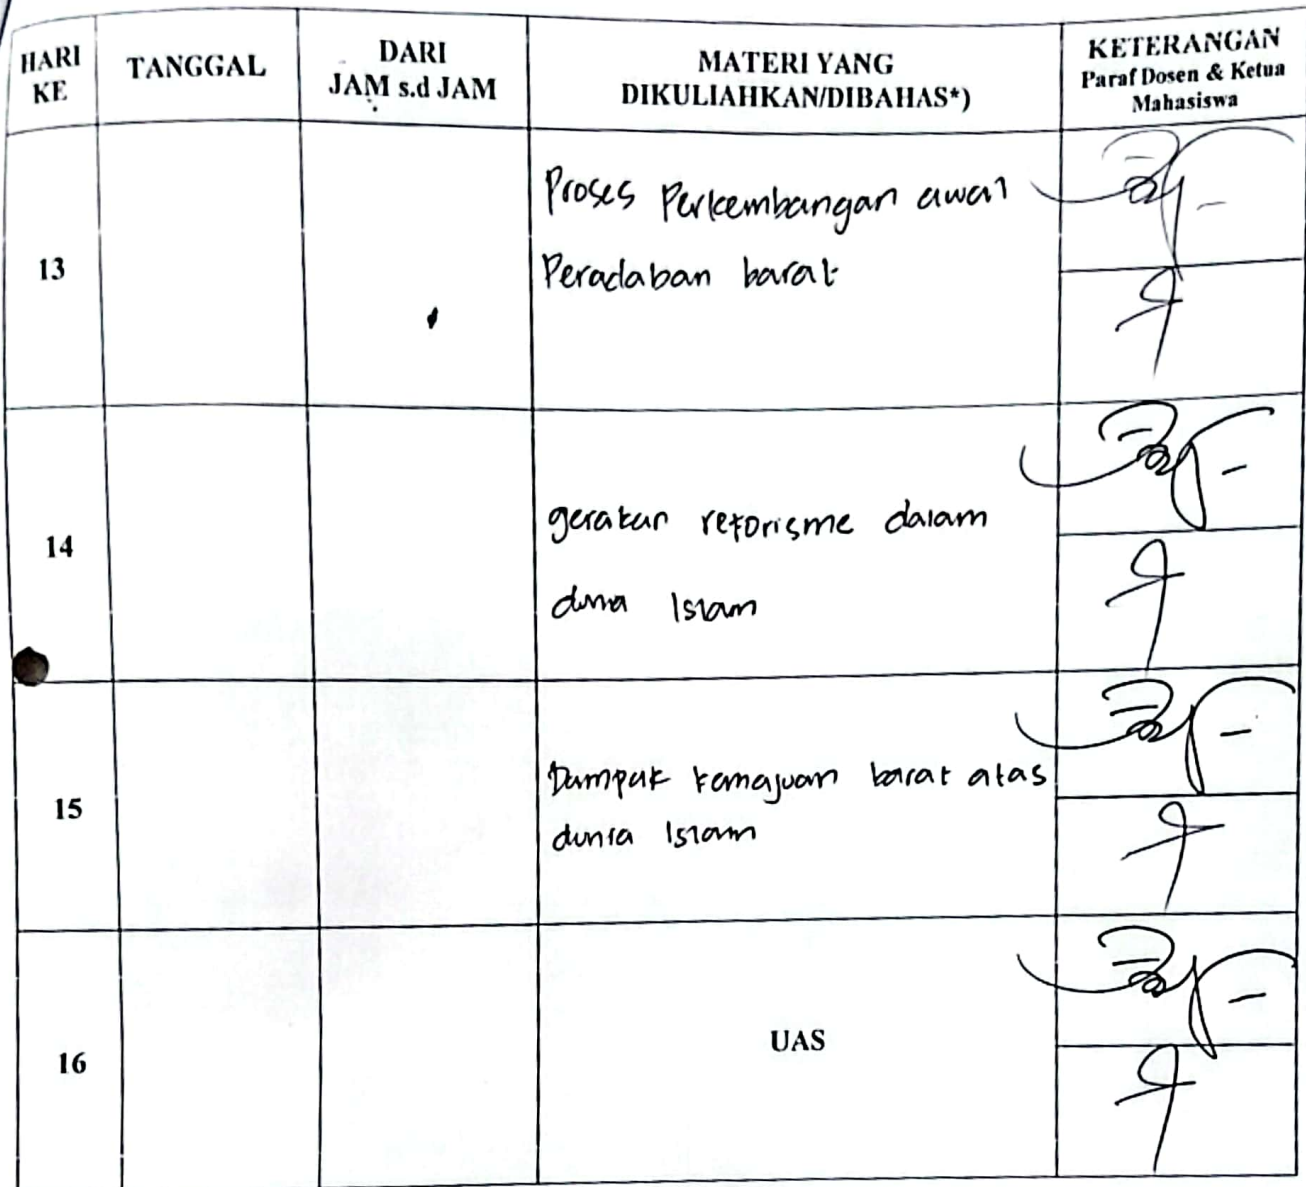 HARI KE
TANGGAL
DARI
JAM s.d JAM
MATERI YANG
DIKULIAHKAN/DIBAHAS*)
KETERANGAN
Paraf Dosen & Ketua
Mahasiswa
13
Proses Perkembangan awal
Peradaban barat
14
gerakan reforisme dalam
dunia Islam
15
Dampak kemajuan barat atas
dunia Islam
16
UAS